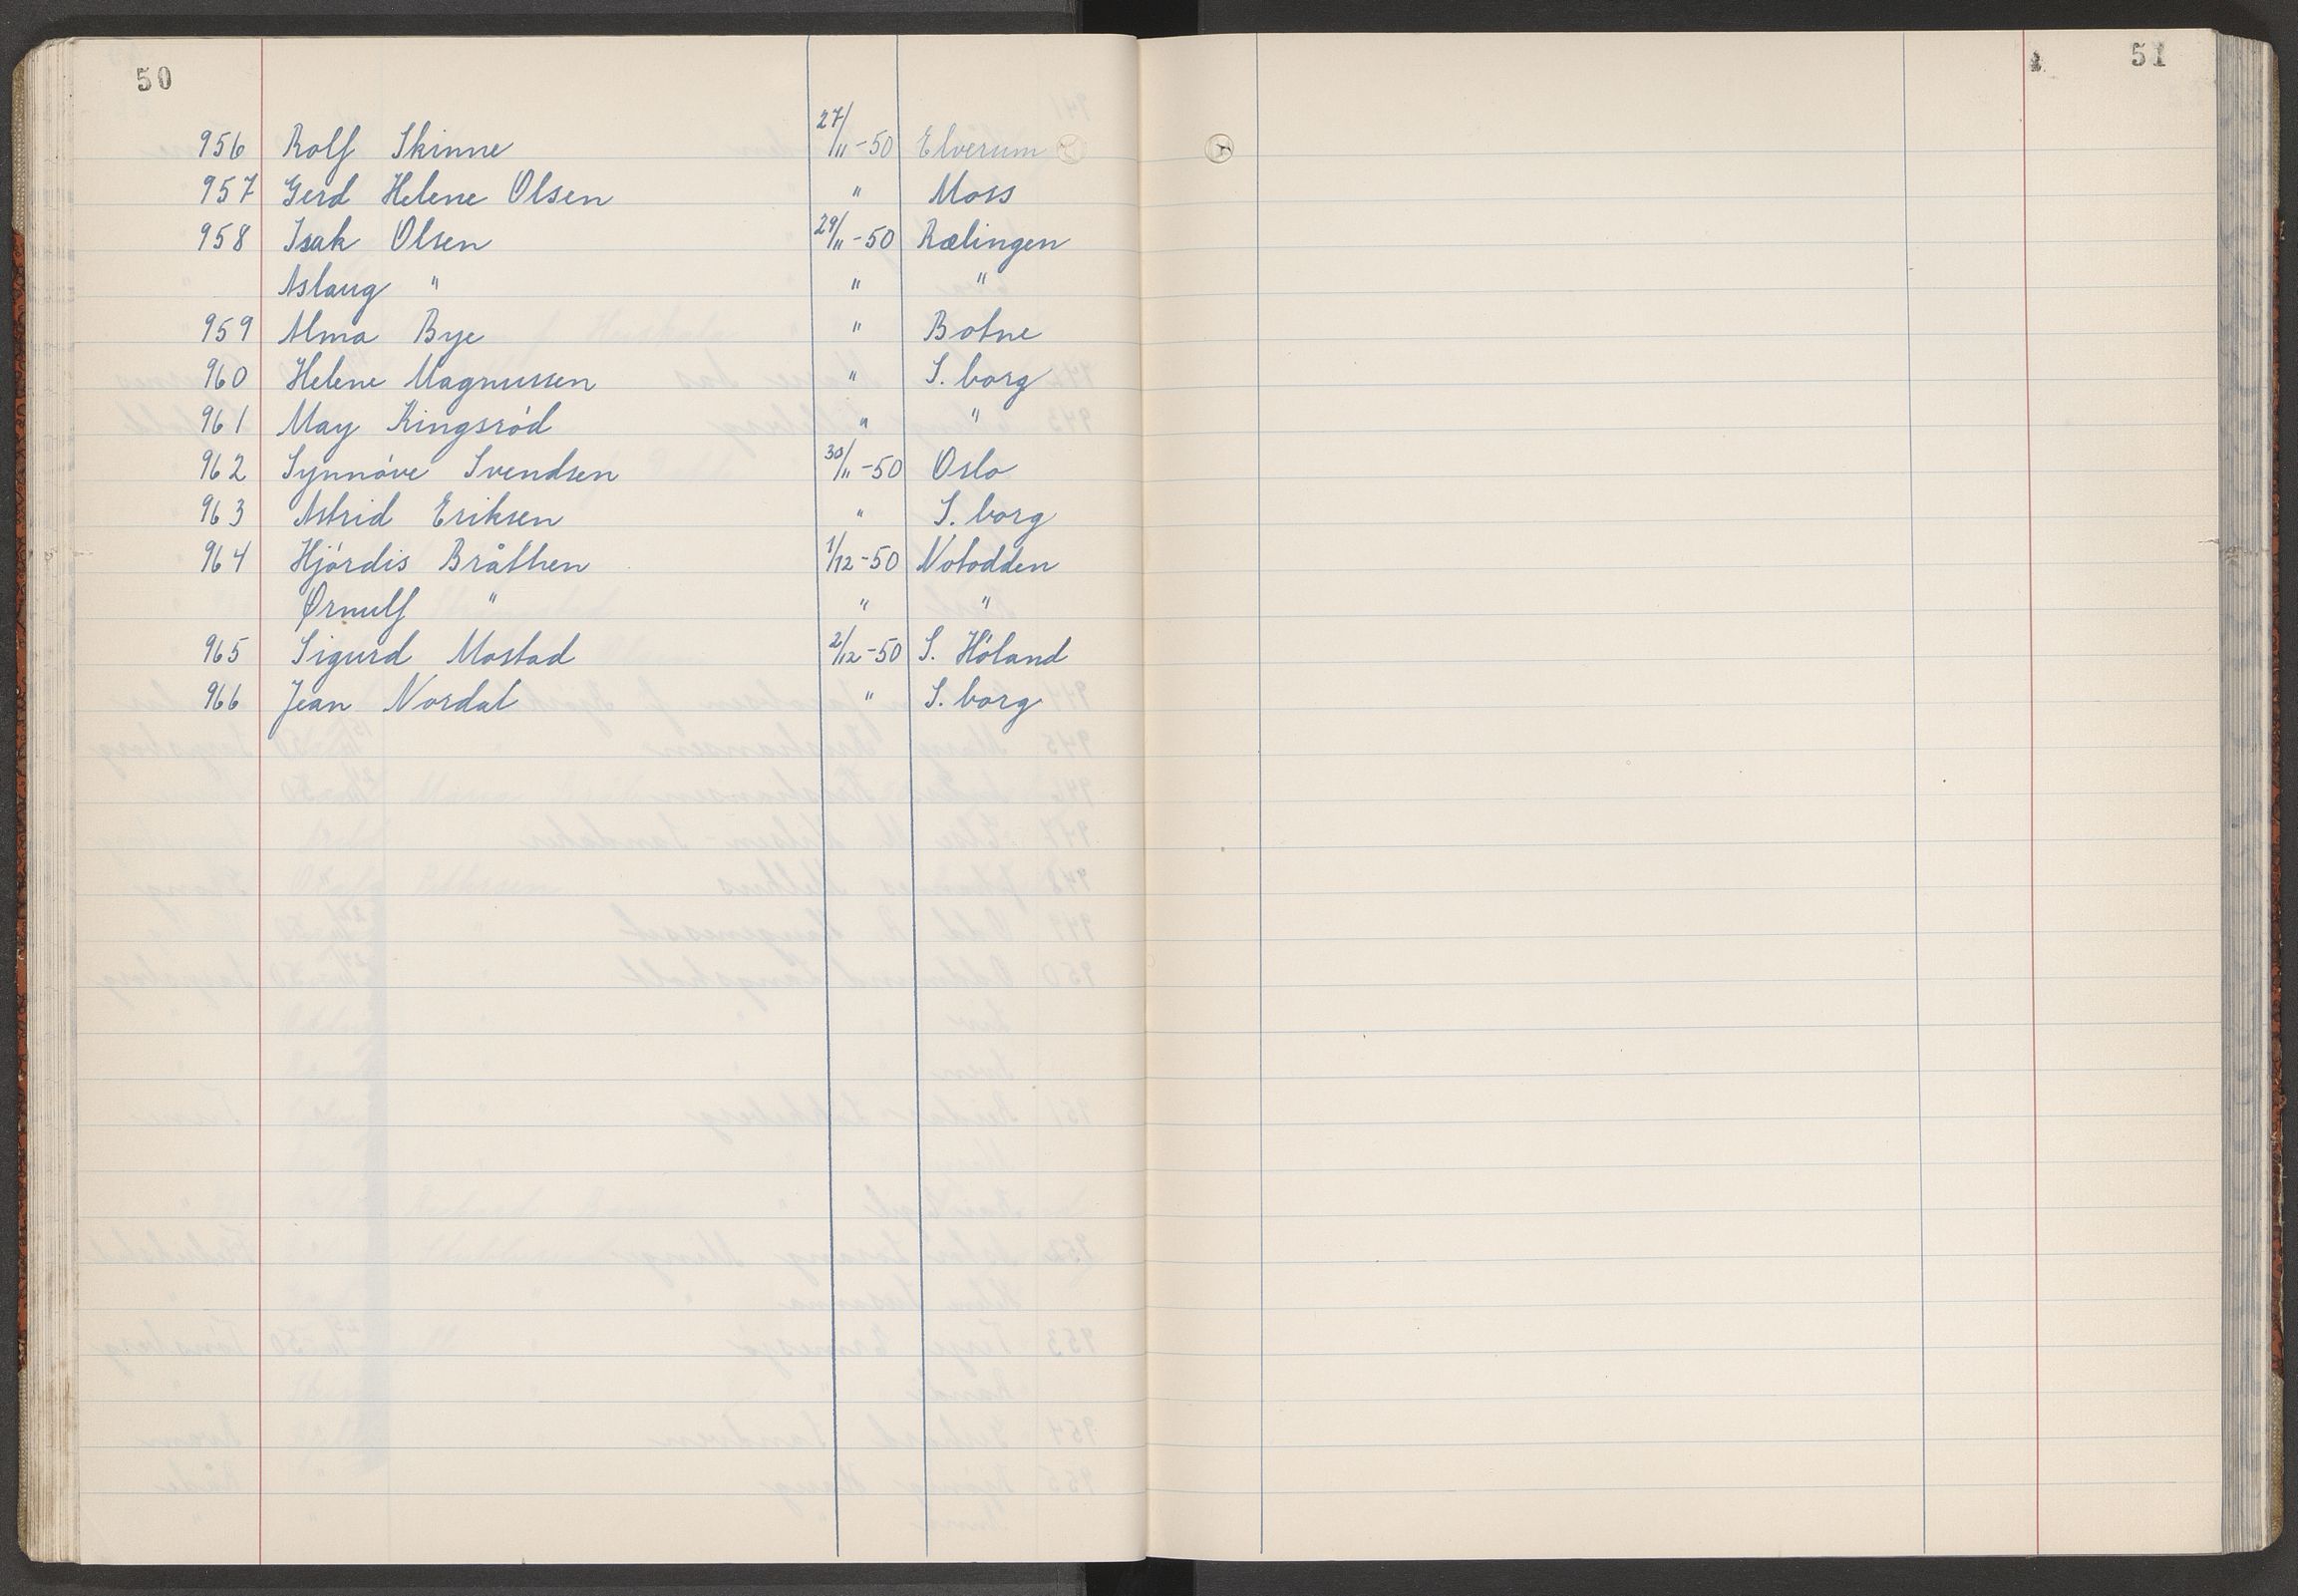 50
956 Rolf Skinne 27/11-50 Elverum
957 Gerd Helene Olsen " Moss
958 Isak Olsen 29/11-50 Rælingen
Aslaug " " "
959 Alma Bye " Botne
960 Helene Magnussen " S. borg
961 May Ringsrød " "
962 Synnøve Svendsen 30/11-50 Oslo
963 Astrid Eriksen " S. borg
964 Hjørdis Bråthen 1/12-50 Notodden
Ørnulf " " "
965 Sigurd Mostad 2/12-50 S. Høland
966 Jean Nordal " S. borg
51